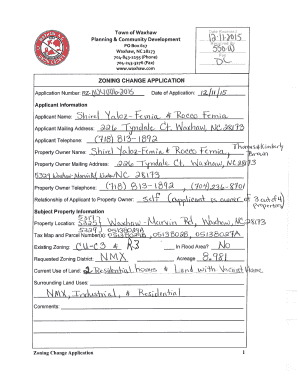 Town of Waxhaw
Planning & Community Development
PO Box 617
Waxhaw, NC 28173
704-843-2195 (Phone)
704-243-3276 (Fax)
www.waxhaw.com
12-11-2015
550.00
DC
ZONING CHANGE APPLICATION
Application Number: RZ- -2015 Date of Application: 12/11/15
Applicant Information
Applicant Name: Shirel Yaloz-Femia & Rocco Femia
Applicant Mailing Address: 226 Tyndale Ct. Waxhaw, NC. 28173
Applicant Telephone: (718) 813-1892
Property Owner Name: Shirel Yaloz-Femia & Rocco Femia, Thomas & Kimberly Brown
Property Owner Mailing Address: 226 Tyndale Ct. Waxhaw, NC 28173
5327 Waxhaw-Marvin Rd Waxhaw NC 28173
Property Owner Telephone: (718) 813-1892, (704) 236-8701
Relationship of Applicant to Property Owner: Self (applicant is owner of 3 out of 4 properties)
Subject Property Information
Property Location: 5325 Waxhaw-Marvin Rd, Waxhaw, NC 28173
5329
Tax Map and Parcel Number(s): 05138028B, 05138027A
Existing Zoning: CU-C3 & R3 In Flood Area? No
Requested Zoning District: NMX Acreage 8.981
Current Use of Land: 2 Residential homes & Land with Vacant Home
Surrounding Land Uses:
NMX, Industrial, & Residential
Comments:
Zoning Change Application 1